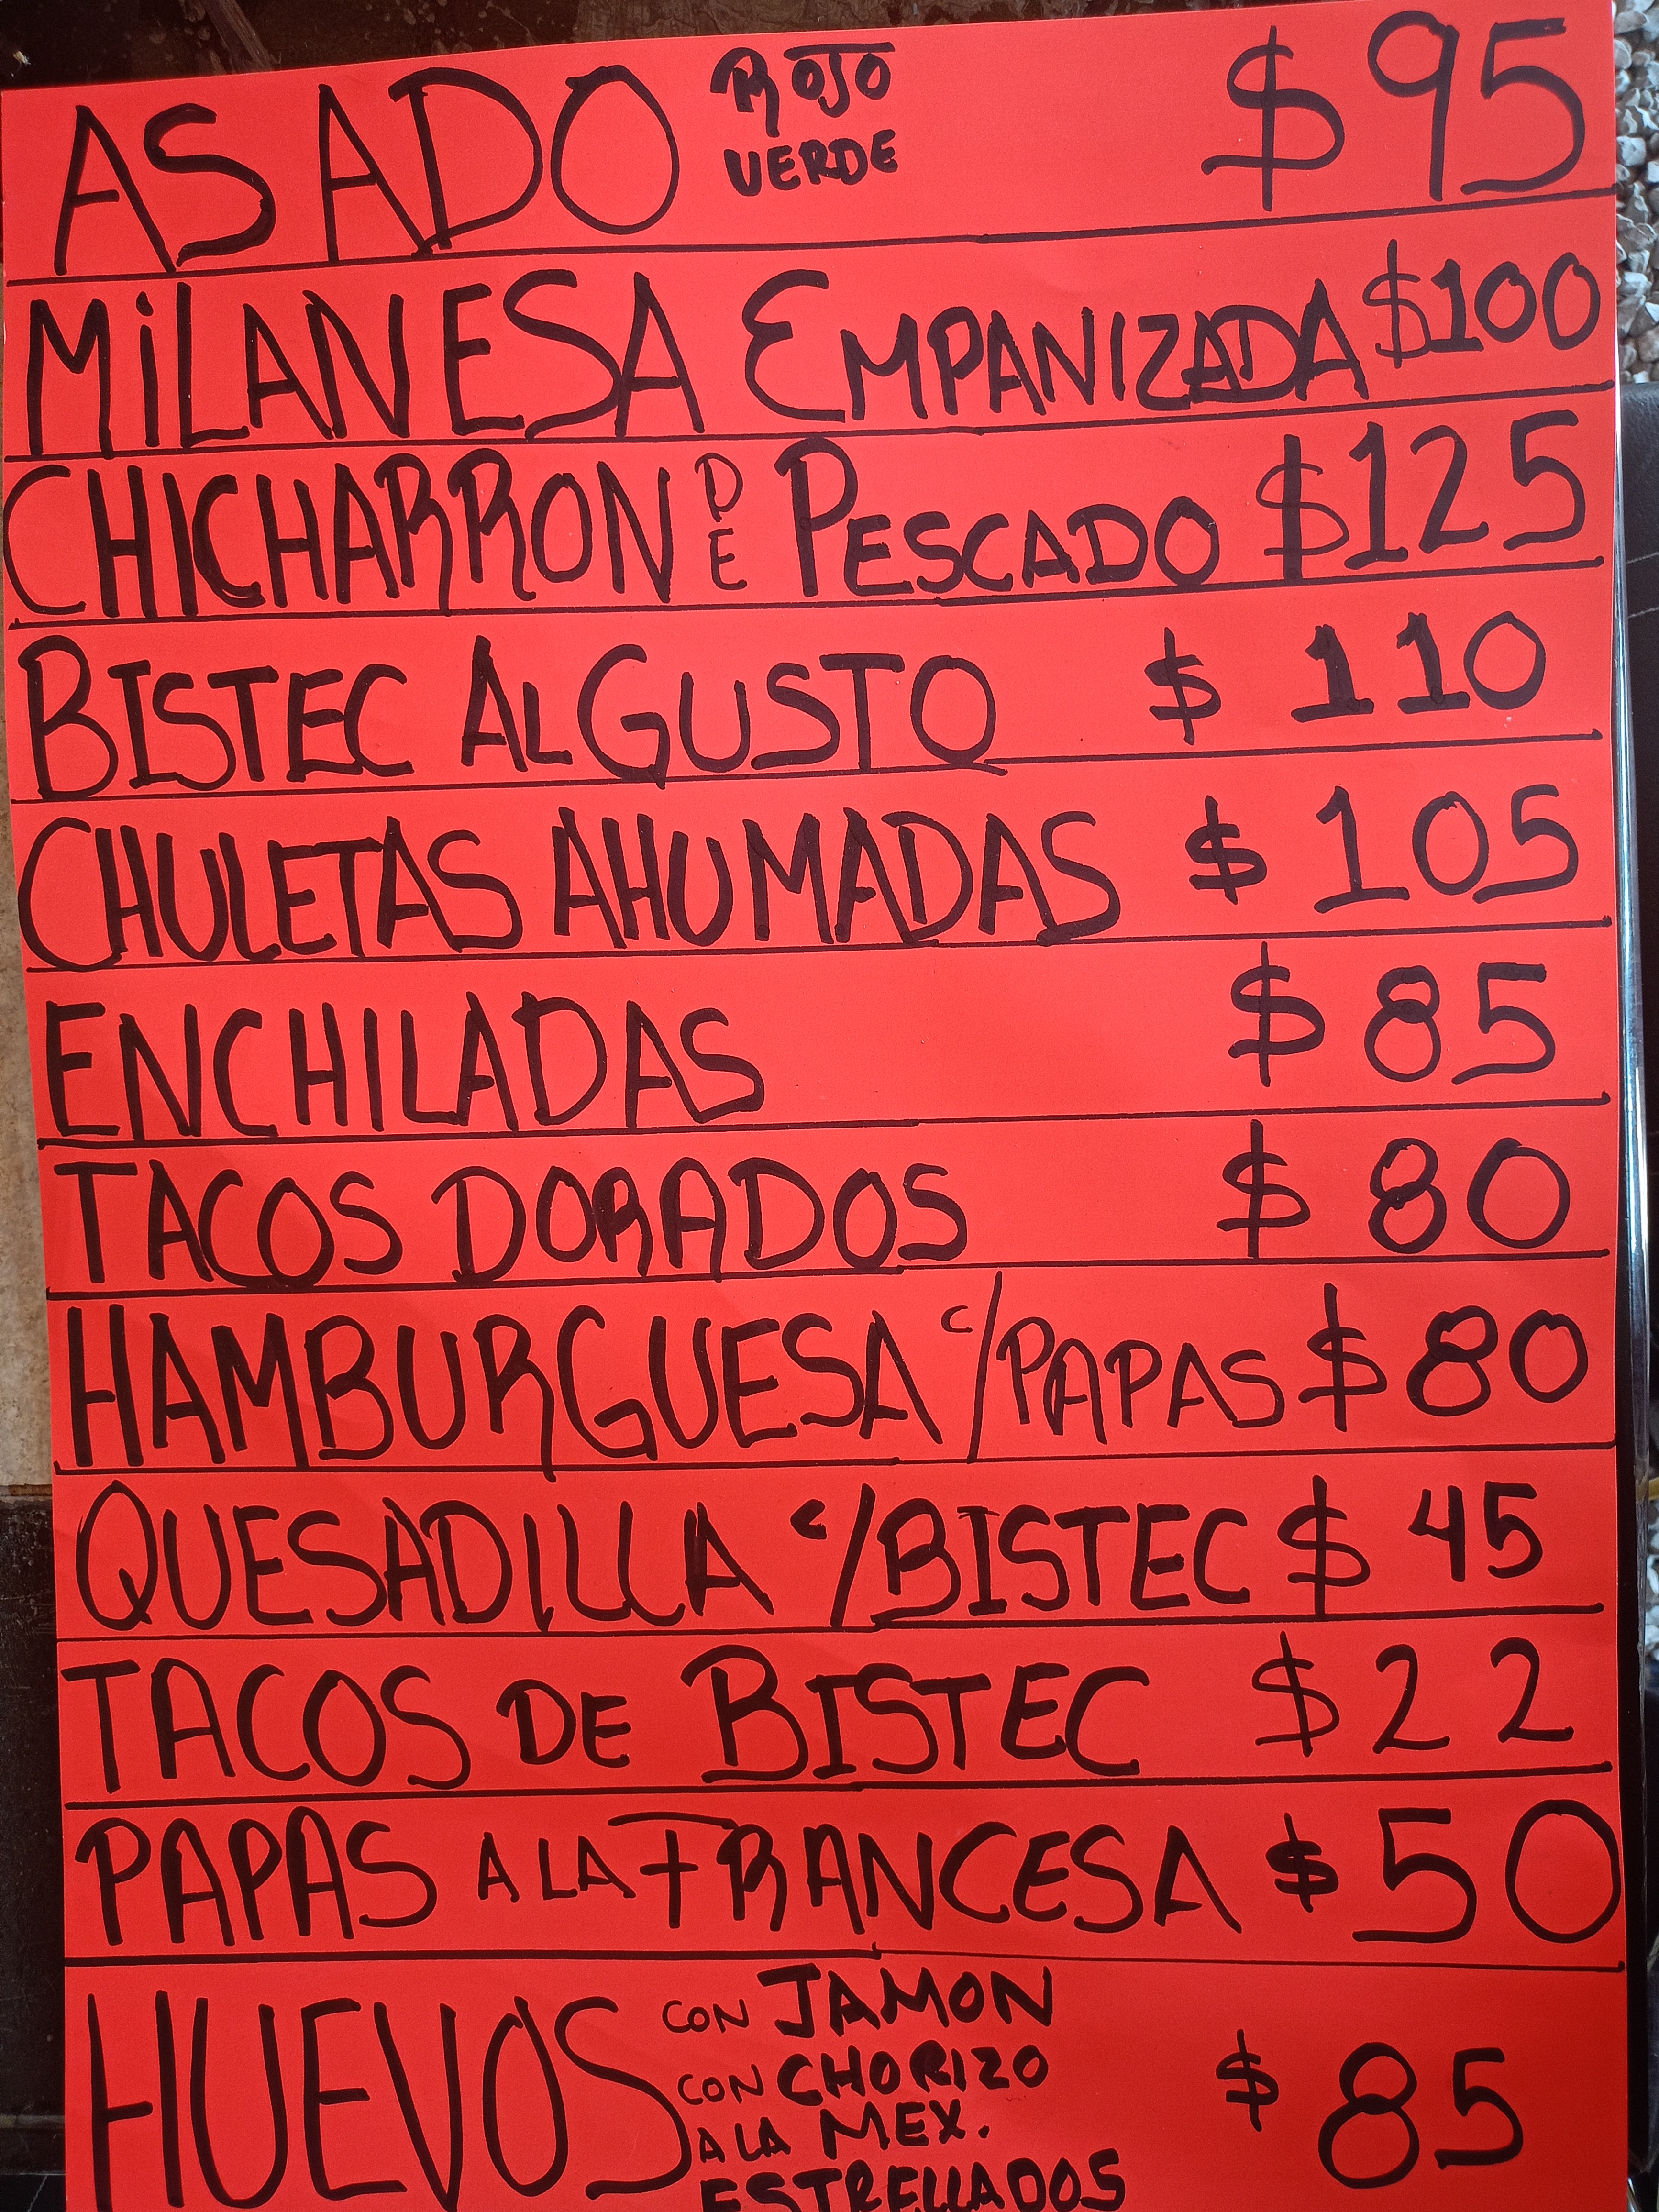 ASADO ROJO VERDE $95
MiLANESA EMPANIZADA $100
CHICHARRON DE PESCADO $125
BISTEC AL GUSTO $ 110
CHULETAS AHUMADAS $ 105
ENCHILADAS $ 85
TACOS DORADOS $ 80
HAMBURGUESA c/PAPAS $ 80
QUESADILLA c/BISTEC $ 45
TACOS DE BISTEC $ 22
PAPAS A LA FRANCESA $ 50
HUEVOS CON JAMON
CON CHORIZO
A LA MEX.
ESTRELLADOS
$ 85